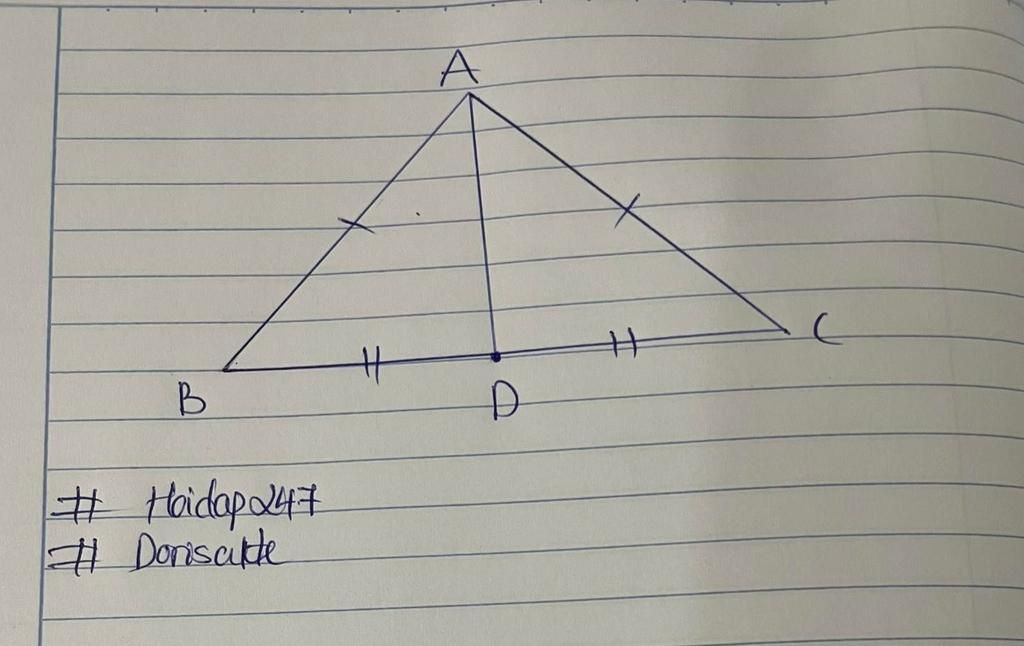 A
B
D
C
# Hoidap247
# Dorisakte